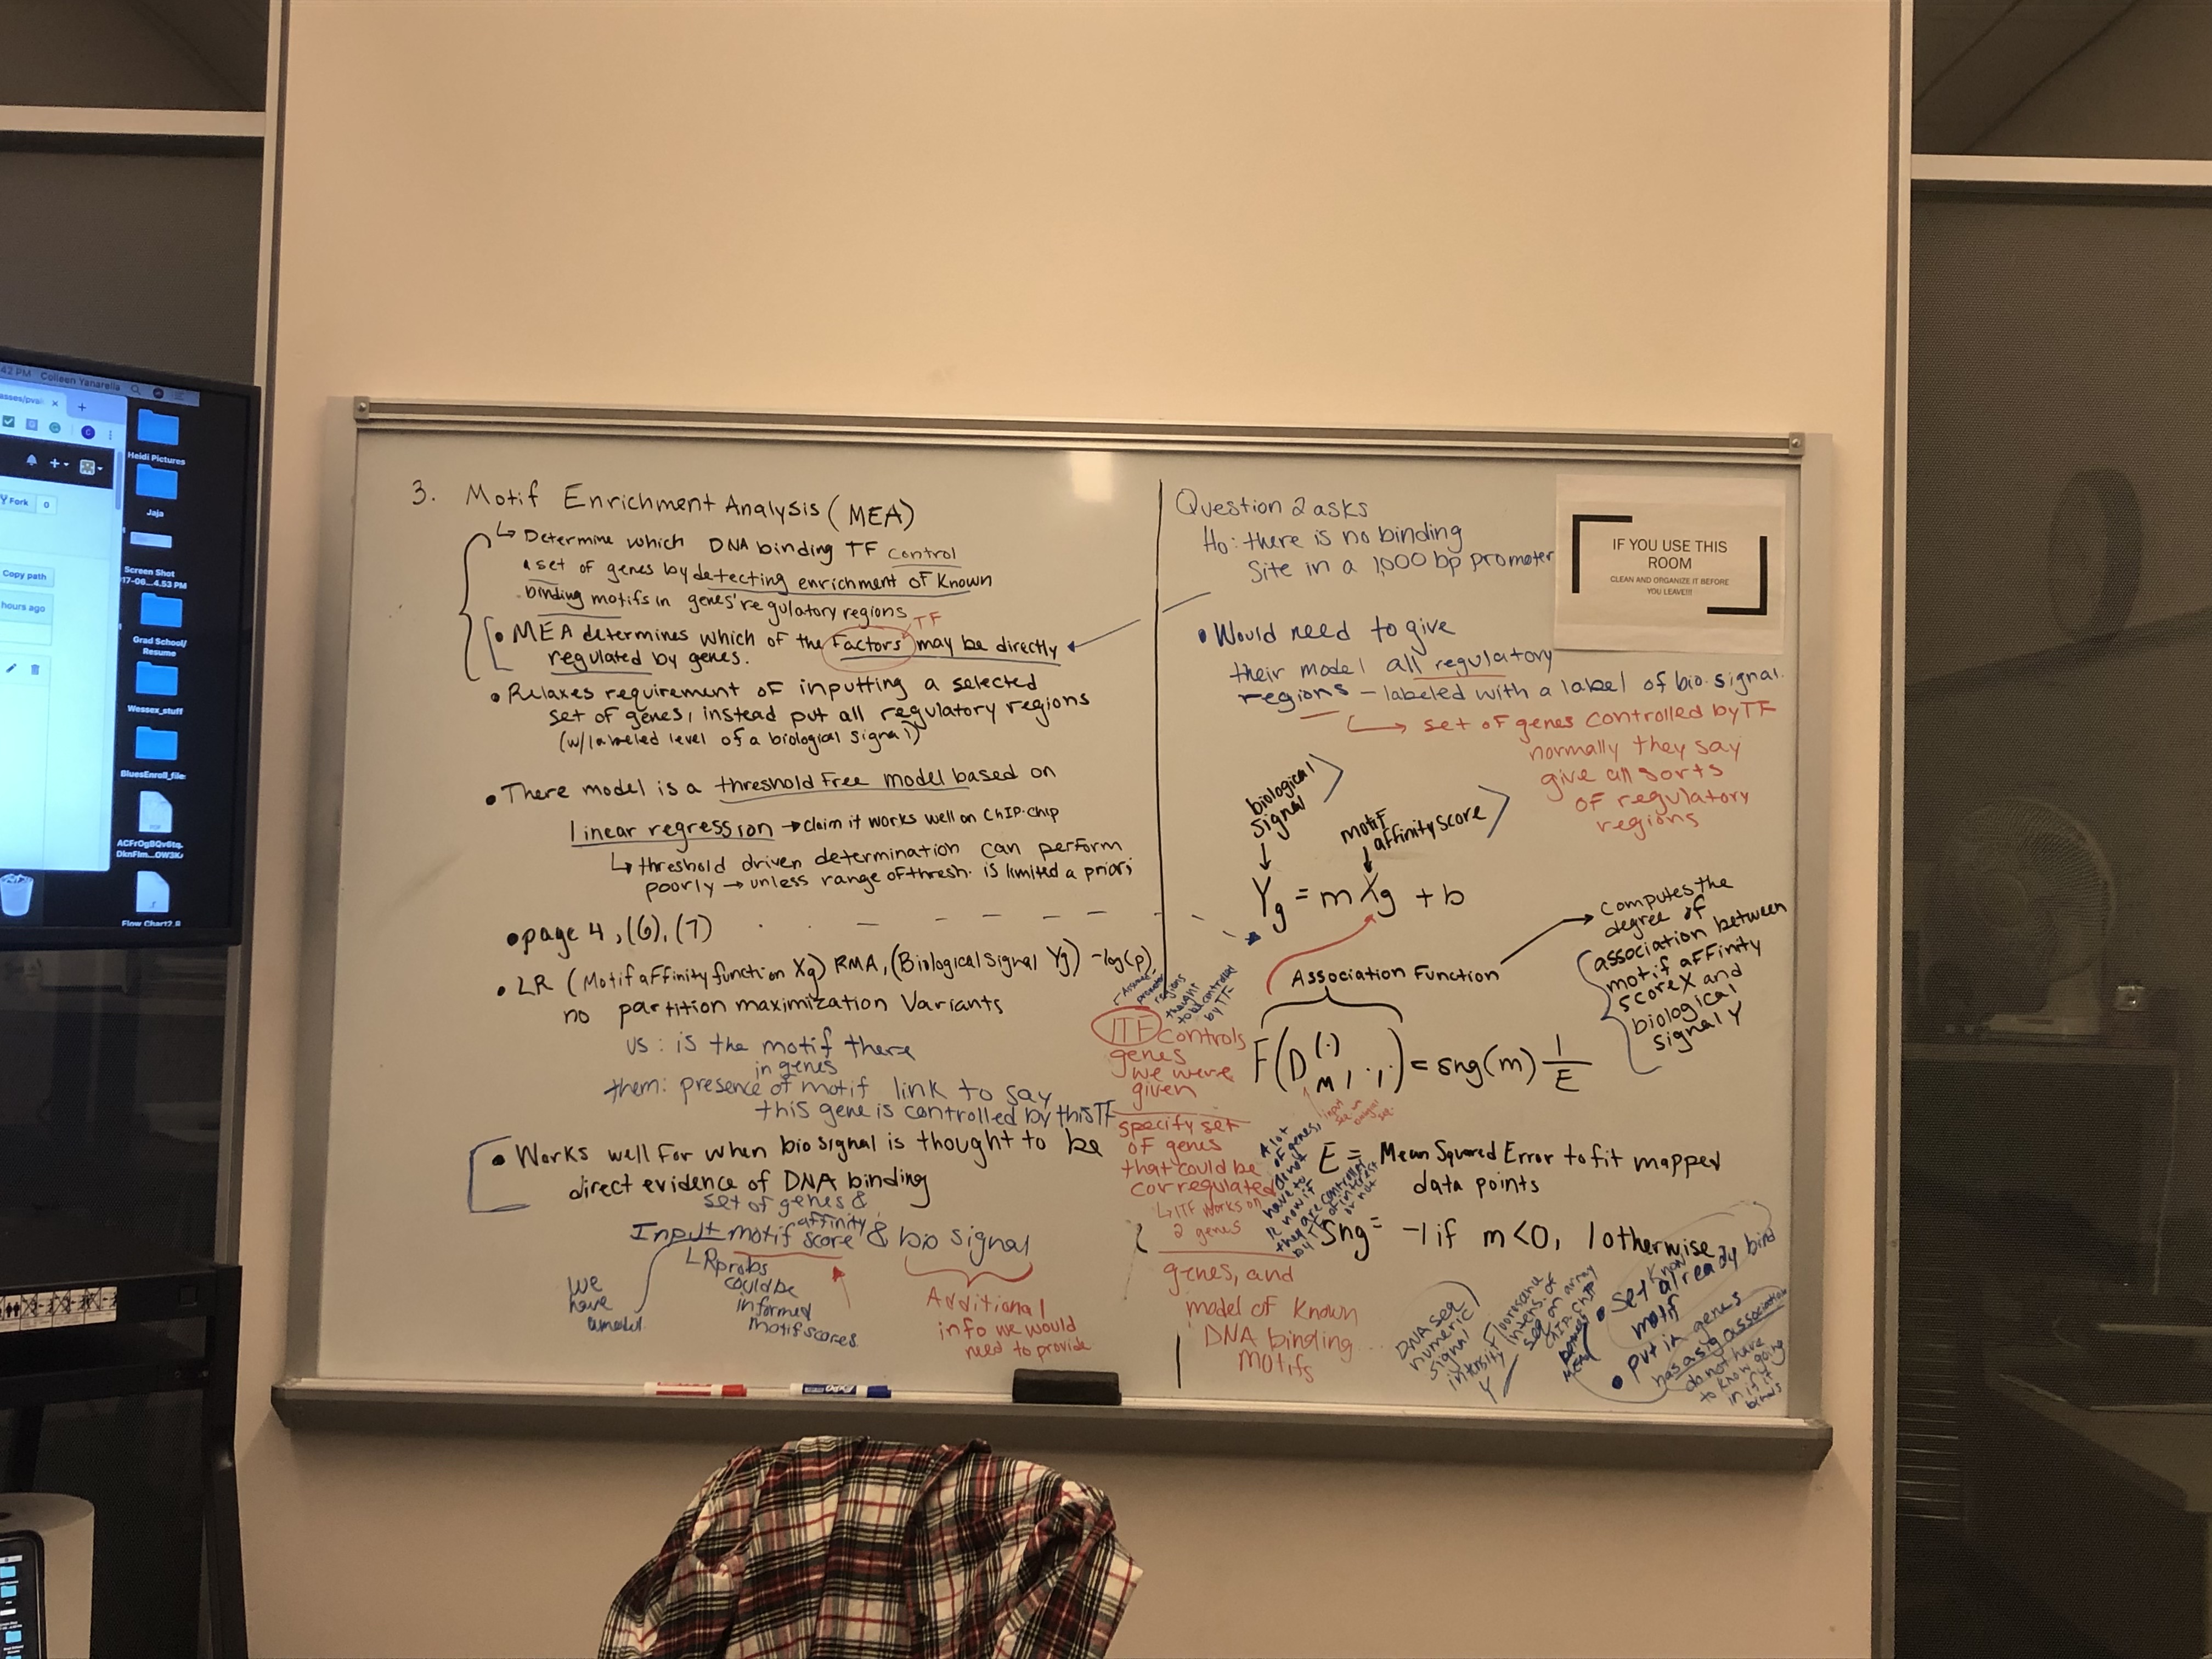 42 PM Colleen Yanarella
asses/pval
Fork 0
Copy path
hours ago
Heidi Pictures
Jaja
Screen Shot
17-06...4.53 PM
Grad School/
Resume
Wessex_stuff
BluesEnroll_file
ACFrOgBQv6tq.
DknFlm...OW3K
Flow Chart2
3. Motif Enrichment Analysis (MEA)
↳ Determine which DNA binding TF control
a set of genes by detecting enrichment of known
binding motifs in genes' regulatory regions
TF
• MEA determines which of the factors may be directly
regulated by genes.
• Relaxes requirement of inputting a selected
set of genes, instead put all regulatory regions
(w/labeled level of a biological signal)
• There model is a threshold free model based on
linear regression → claim it works well on ChIP-chip
↳ threshold driven determination can perform
poorly → unless range of thresh. is limited a priori
• page 4, (6), (7)
• LR (Motif affinity function Xg) RMA, (Biological Signal Yg) -log(p)
no partition maximization variants
us: is the motif there
in genes
them: presence of motif link to say
this gene is controlled by this TF
• Works well for when bio signal is thought to be
direct evidence of DNA binding
set of genes &
Input motif affinity score & bio signal
we
have
a model
↳ Rprobs
could be
informed
motif scores
Additional
info we would
need to provide
Question 2 asks
Ho: there is no binding
site in a 1,000 bp promoter
IF YOU USE THIS
ROOM
CLEAN AND ORGANIZE IT BEFORE
YOU LEAVE!!!
• Would need to give
their model all regulatory
regions - labeled with a label of bio. signal.
→ set of genes controlled by TF
normally they say
give all sorts
of regulatory
regions
biological
signal
motif
affinity score
Yg = mXg + b
Association Function
computes the
degree of
association between
motif affinity
score X and
biological
signal Y
F(D(·) M, ·, ·) = sng(m) 1/E
input
E = Mean Squared Error to fit mapped
data points
Sng = -1 if m<0, 1 otherwise
Assume
promoter
regions
thought
to be controlled
by TF
1TF controls
genes
we were
given
specify set
of genes
that could be
corregulated
↳ 1TF works on
2 genes
genes, and
model of known
DNA binding
motifs
A lot
of genes,
do not
have to
know if
they are controlled
by TF of interest
or not
DNA seq
numeric
signal
intensity
Y
Floorosence
intens. of
seq on array
ChIP chip
• Set already bind
known
motif
• put in genes
has a sig association
do not have
to know going
in if it
binds